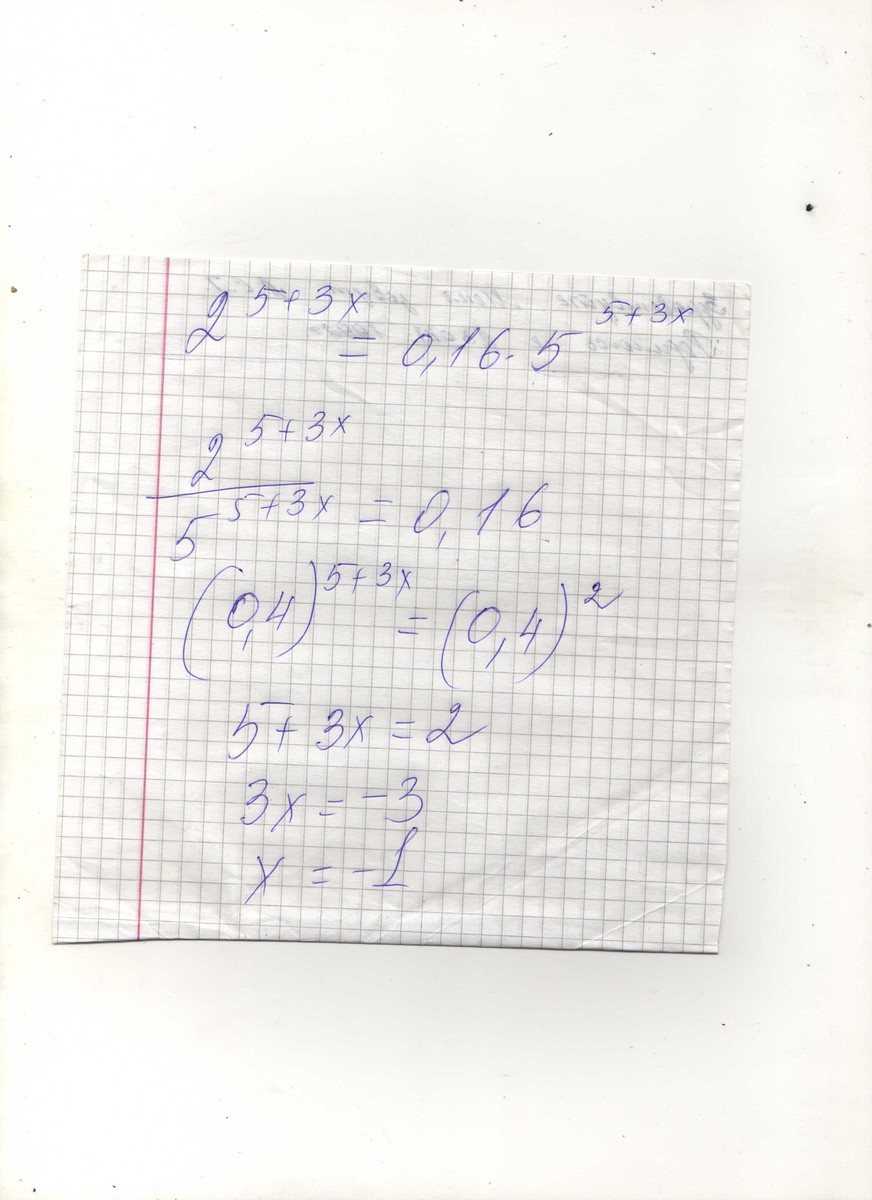 2^{5+3x} = 0,16 · 5^{5+3x}
\frac{2^{5+3x}}{5^{5+3x}} = 0,16
(0,4)^{5+3x} = (0,4)^2
5+3x = 2
3x = -3
x = -1